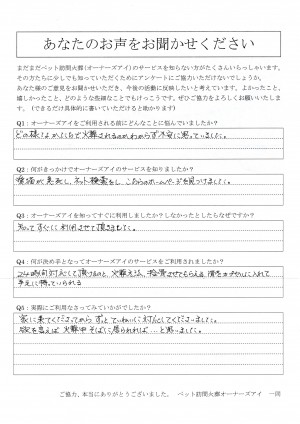 あなたのお声をお聞かせください
まだまだペット訪問火葬(オーナーズアイ)のサービスを知らない方がたくさんいらっしゃいます。
その方たちに少しでも知っていただくためにアンケートにご協力いただけないでしょうか。
あなた様のご意見をお聞かせいただき、今後の活動に反映したいと考えています。よかったこと、
嬉しかったこと、どのような些細なことでもけっこうです。ぜひご協力をよろしくお願いいたします。
(できるだけ具体的に書いていただけると助かります)
Q1:オーナーズアイをご利用される前にどんなことに悩んでいましたか?
どの様なかたちで火葬されるのかわからず不安に思っていました。
Q2:何がきっかけでオーナーズアイのサービスを知りましたか?
愛猫が急死し、ネット検索をし、こちらのホームページを見つけました。
Q3:オーナーズアイを知ってすぐに利用しましたか?しなかったとしたらなぜですか?
知ってすぐに利用させて頂きました。
Q4:何が決め手となってオーナーズアイのサービスをご利用されましたか?
24時間対応して頂けるのと、火葬方法、拾骨させてもらえる、骨をカプセルに入れて
手元に持っていられる
Q5:実際にご利用なさってみていかがでしたか?
家に来てくださってからずっとていねいに対応してくださいました。
欲を言えば火葬中そばに居られれば…と思いました。
ご協力、本当にありがとうございました。 ペット訪問火葬オーナーズアイ 一同